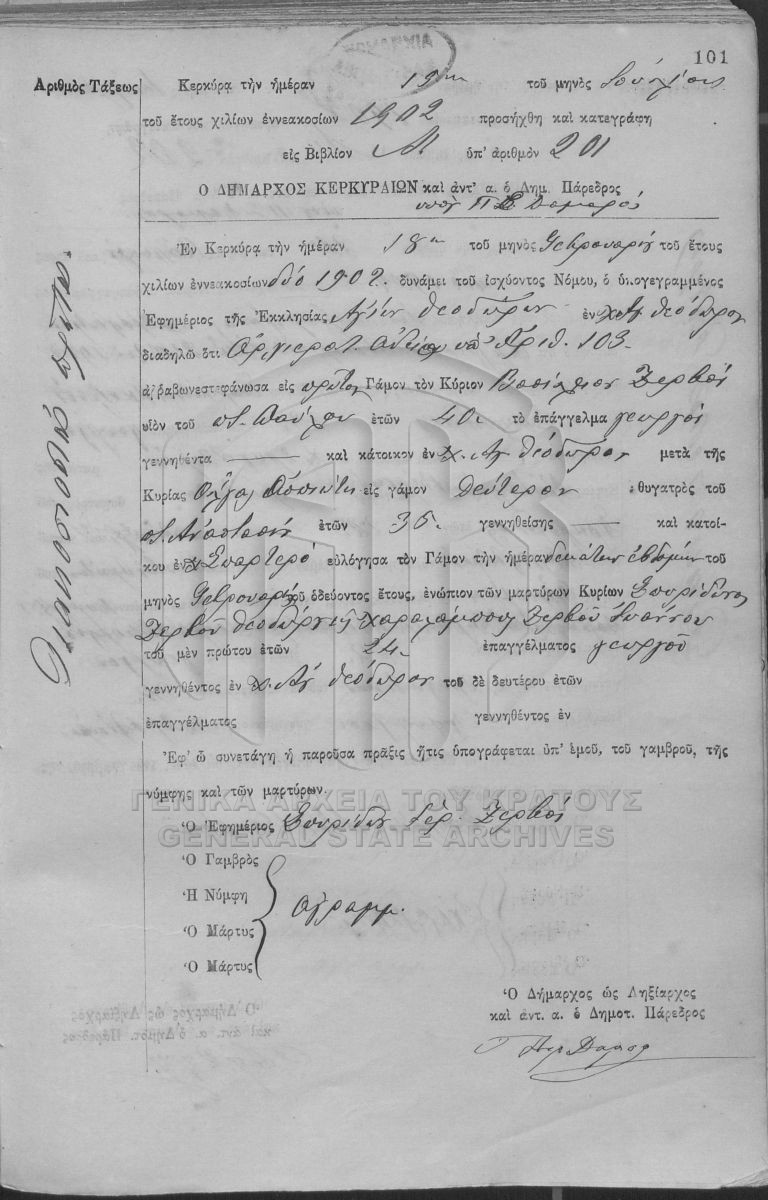 101
Ἀριθμὸς Τάξεως
Διακοσιοστὰ πρῶτον.
Κερκύρα τὴν ἡμέραν 19ην τοῦ μηνὸς Ἰουλίου
τοῦ ἔτους χιλίων ἐννεακοσίων 1902 προσήχθη καὶ κατεγράφη
εἰς Βιβλίον Μ. ὑπ' ἀριθμὸν 201
Ο ΔΗΜΑΡΧΟΣ ΚΕΡΚΥΡΑΙΩΝ καὶ ἀντ' α. ὁ Δημ. Πάρεδρος
Ἐν Κερκύρᾳ τὴν ἡμέραν 18η τοῦ μηνὸς Φεβρουαρίου τοῦ ἔτους
χιλίων ἐννεακοσίων δύο 1902. δυνάμει τοῦ ἰσχύοντος Νόμου, ὁ ὑπογεγραμμένος
Ἐφημέριος τῆς Ἐκκλησίας Ἁγίων Θεοδώρων ἐν χ. Ἁγ. Θεόδωρον
διαδηλῶ ὅτι Ἀρχιερατ. ἀδείᾳ ὑπ' Ἀριθ. 103-
ἀῤῥαβωνεστεφάνωσα εἰς πρῶτον Γάμον τὸν Κύριον Βασίλειον Ζερβὸν
υἱὸν τοῦ π. Παύλου ἐτῶν 40. τὸ ἐπάγγελμα γεωργὸς
γεννηθέντα — καὶ κάτοικον ἐν χ. Ἁγ Θεόδωρον μετὰ τῆς
Κυρίας Ὄλγας εἰς γάμον δεύτερον θυγατρὸς τοῦ
π. Ἀναστασίου ἐτῶν 35. γεννηθείσης — καὶ κατοί-
κου ἐν χ. Σπαρτερό εὐλόγησα τὸν Γάμον τὴν ἡμέραν δεκάτην ἑβδόμην τοῦ
μηνὸς Φεβρουαρίου τοῦ ὁδεύοντος ἔτους, ἐνώπιον τῶν μαρτύρων Κυρίων Σπυρίδωνος
Ζερβοῦ Θεοδώρου Χαραλάμπους Ζερβοῦ Ἰωάννου
τοῦ μὲν πρώτου ἐτῶν 24. ἐπαγγέλματος γεωργοῦ
γεννηθέντος ἐν χ. Ἁγ Θεόδωρον τοῦ δὲ δευτέρου ἐτῶν
ἐπαγγέλματος γεννηθέντος ἐν
Ἐφ' ᾧ συνετάγη ἡ παροῦσα πρᾶξις ἥτις ὑπογράφεται ὑπ' ἐμοῦ, τοῦ γαμβροῦ, τῆς
νύμφης καὶ τῶν μαρτύρων.
ΓΕΝΙΚΑ ΑΡΧΕΙΑ ΤΟΥ ΚΡΑΤΟΥΣ
GENERAL STATE ARCHIVES
Ὁ Ἐφημέριος Σπυρίδων Ἱερ. Ζερβὸς
Ὁ Γαμβρὸς
Ἡ Νύμφη
ἀγραμμ.
Ὁ Μάρτυς
Ὁ Μάρτυς
Ὁ Δήμαρχος ὡς Ληξίαρχος
καὶ ἀντ. α. ὁ Δημοτ. Πάρεδρος